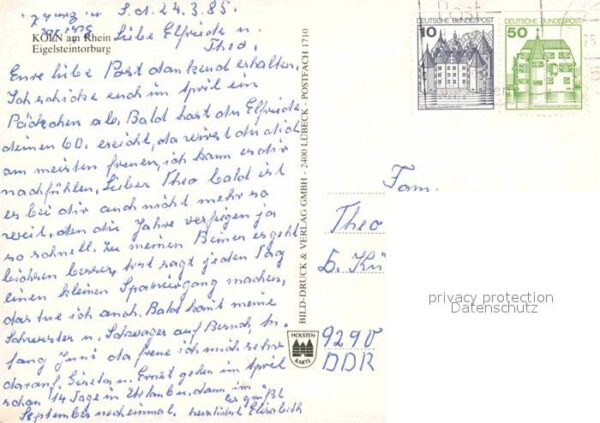 S. d. 24.3.85.
KÖLN am Rhein
Eigelsteintorburg
Liebe Elfriede u.
Theo.
Eure liebe Post dankend erhalten.
Ich schicke euch im April ein
Päckchen ab. Bald hast du Elfriede
deinen 60. ereicht, da wirst du dich
am meisten freuen, ich kann es dir
nachfühlen. Lieber Theo bald ist
es bei dir auch nicht mehr so
weit, den die Jahre verfligen ja
so schnell. Zu meinen Beinen es geht
bischen besser, sagt jeden Tag
einen kleinen Spaziergang machen,
das tue ich auch. Bald komt meine
Schwester u. Schwager auf Besuch, An-
fang Juni da freue ich mich sehr
darauf. Gisela u. Ernst gehen im April
schon 14 Tage in Urlaub u. dann im
September nocheinmal. es grüßt
herzlichst Elisabeth
BILD-DRUCK & VERLAG GMBH - 2400 LÜBECK - POSTFACH 1710
HOLSTEN-
KARTE
DEUTSCHE BUNDESPOST
10
DEUTSCHE BUNDESPOST
50
Fam.
Theo
b. Kü
9290
DDR
privacy protection
Datenschutz